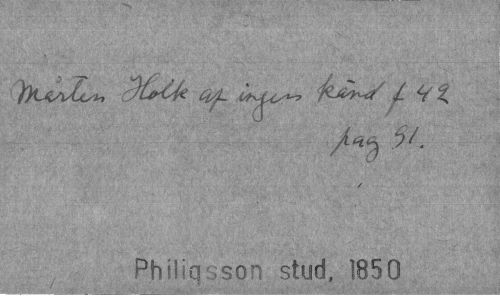 Mårten Holk af ingen känd f 42
pag 91.
Philiqsson stud, 1850